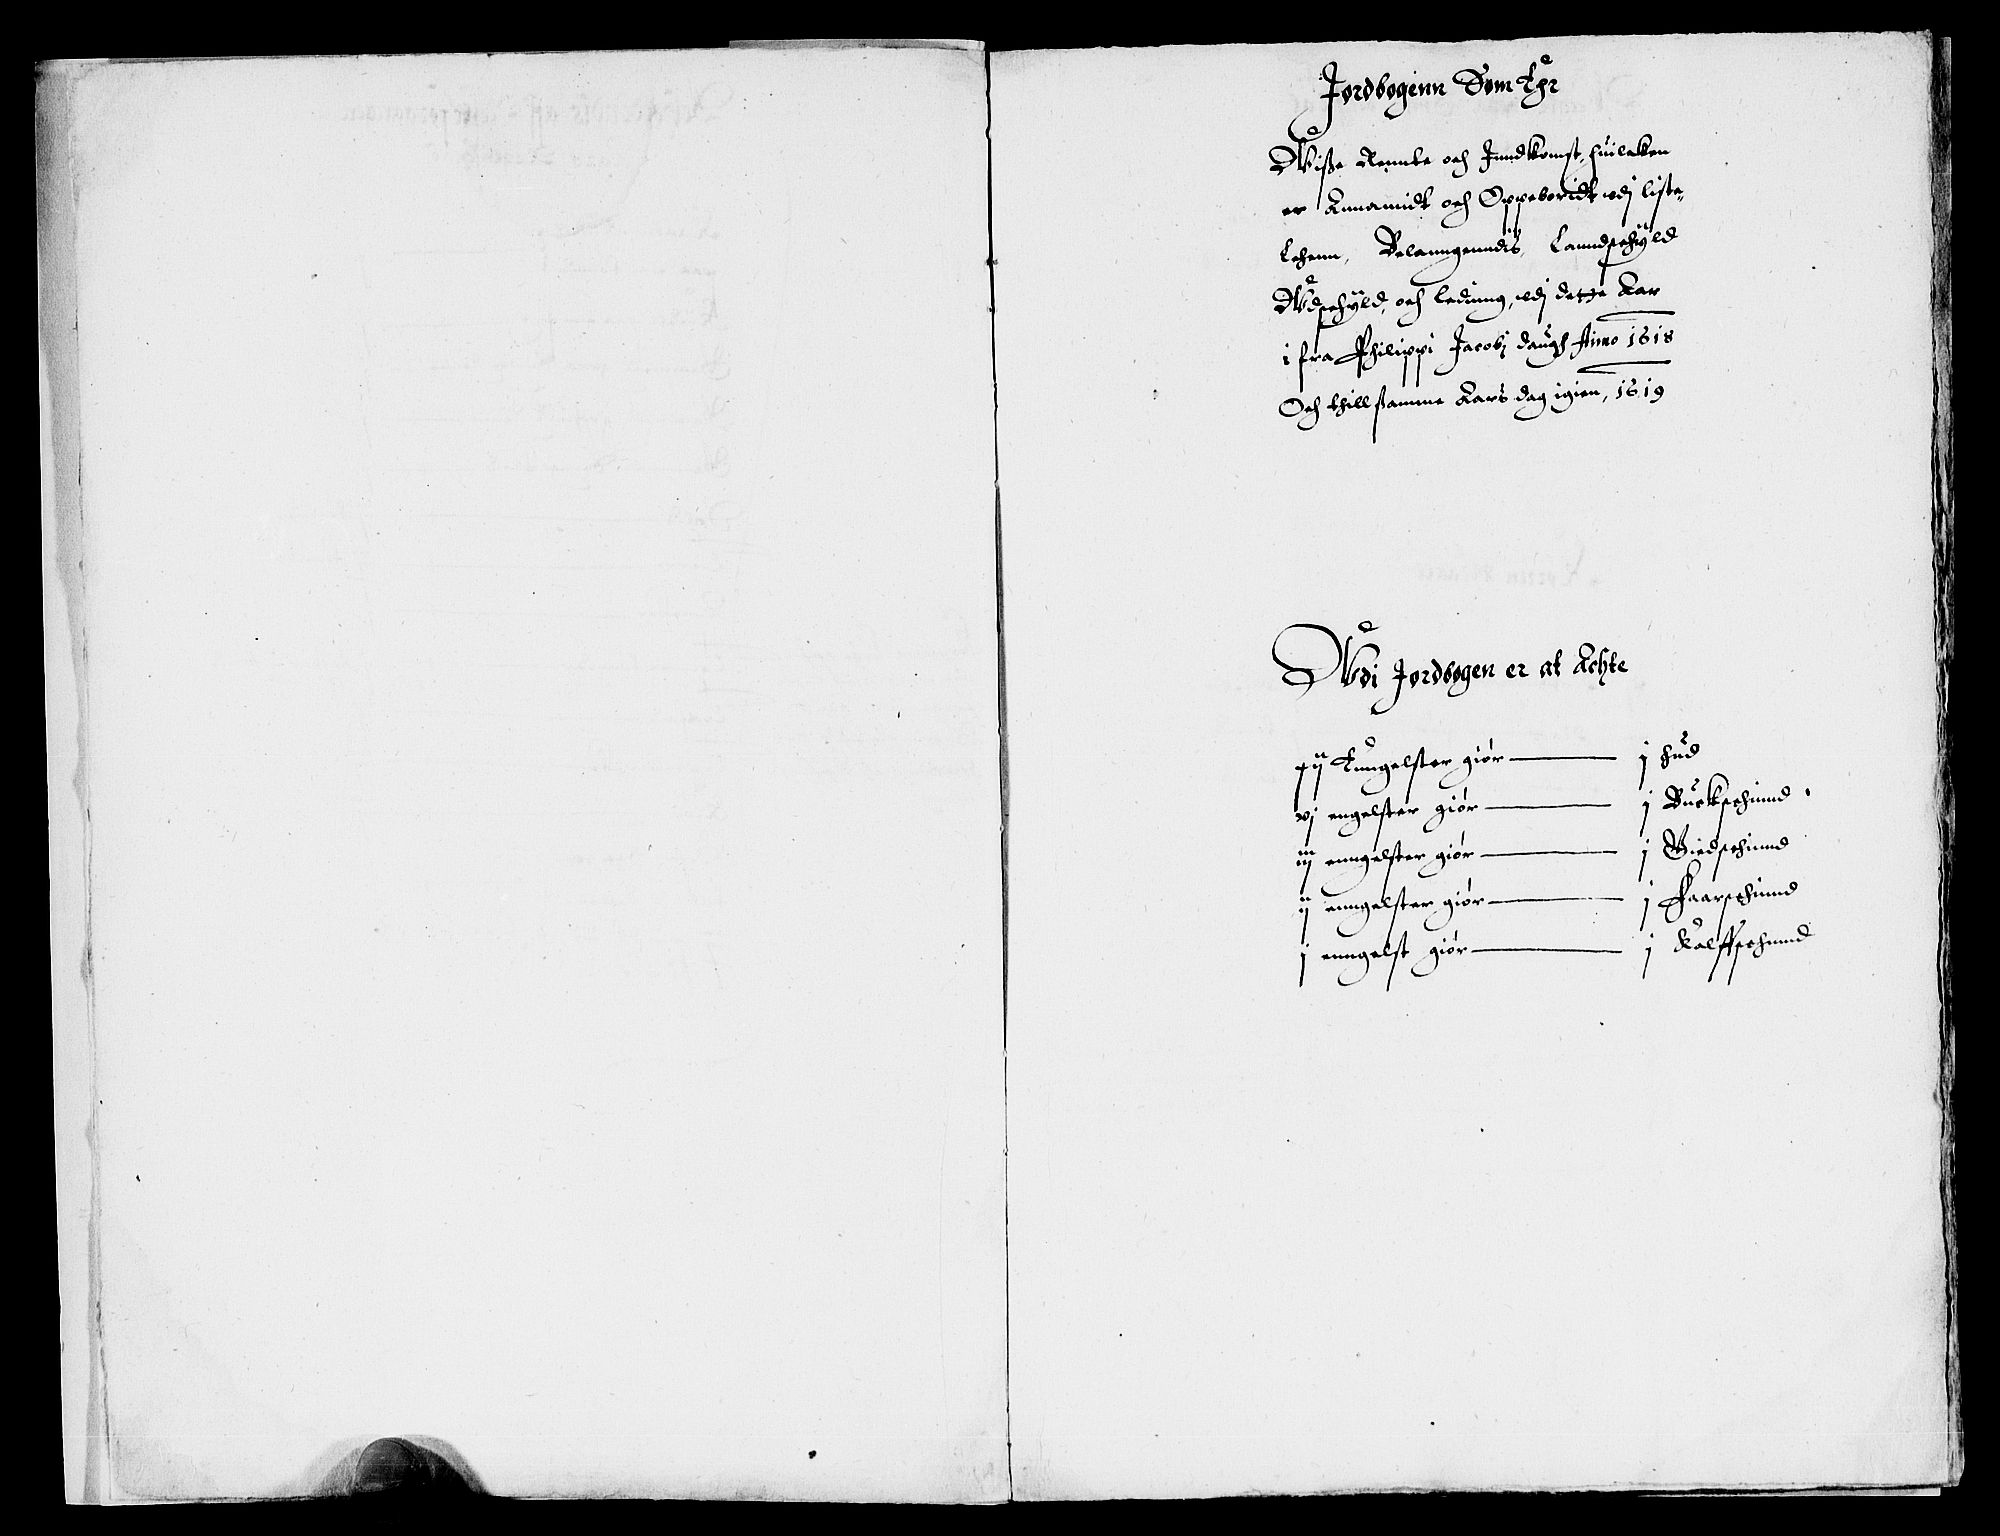 Jordbogenn Som Ehr
Wiße Rennte och Inndkomst, huilcken
er Annamidt och Oppeboridt udj liste
Lehenn, Belanngenndis, Lanndschÿld
Wdschÿld, och leding, udj dette Aar
i fra Philippi Jacobj daugh Anno 1618
Och thill samme Aars dag igien, 1619
Wdi Jordbogen er at Achte
xij Enngelster giør j hud
vj engelster giør j Buckschinnd
iiij enngelster giør j Giedschinnd
ij enngelster giør j Faarschinnd
j enngelst giør j Kalffschinnd